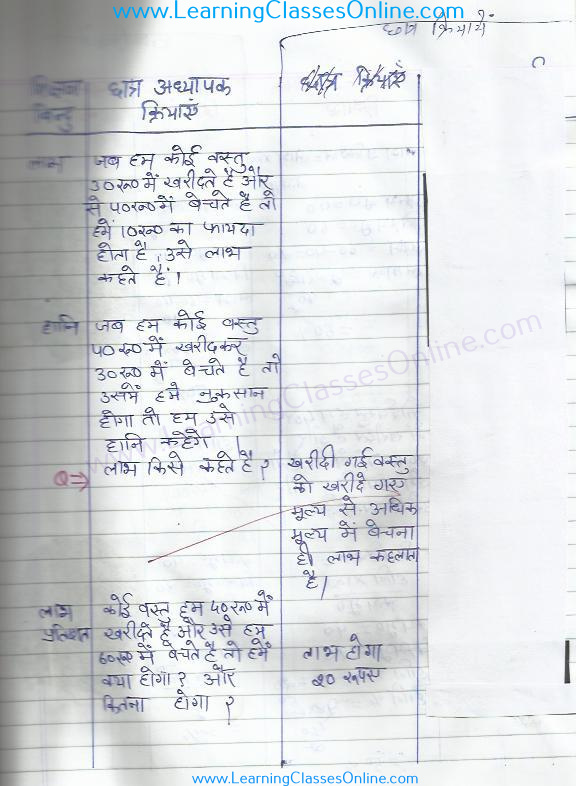 www.LearningClassesOnline.com
छात्र क्रियायें
शिक्षण छात्र अध्यापक
बिन्दु क्रियाएं
छात्र क्रियाएं
लाभ जब हम कोई वस्तु
30रु0 में खरीदते है और
से 40रु0 में बेचते है तो
हमें 10रु0 का फायदा
होता है, उसे लाभ
कहते हैं।
हानि जब हम कोई वस्तु
40रु0 में खरीदकर
30रु0 में बेचते है तो
उसमें हमे नुकसान
होगा तो हम उसे
हानि कहेगे।
Q⇒ लाभ किसे कहते है?
खरीदी गई वस्तु
को खरीदे गए
मूल्य से अधिक
मूल्य में बेचना
ही लाभ कहलाता
है।
लाभ कोई वस्तु हम 40रु0 में
प्रतिशत खरीदते है और उसे हम
60रु0 में बेचते है तो हमें
क्या होगा? और
कितना होगा?
लाभ होगा
20 रूपए
www.LearningClassesOnline.com
www.LearningClassesOnline.com